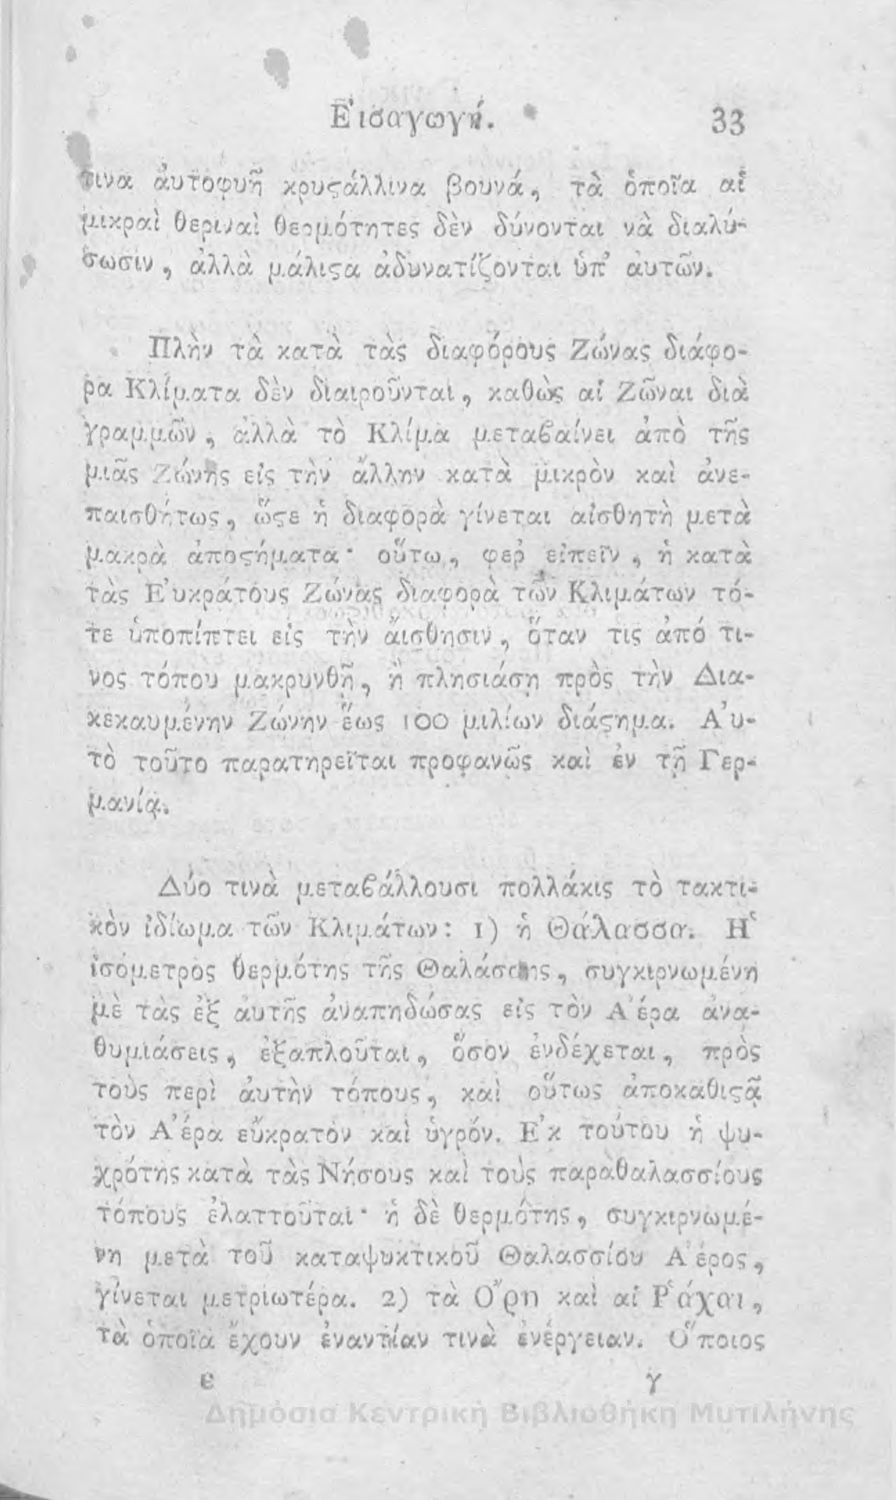 Εἰσαγωγή. 33
τινα ἀυτοφυῆ κρυςάλλινα βουνά, τὰ ὁποῖα αἱ
μικραὶ θεριναὶ θερμότητες δὲν δύνονται νὰ διαλύ-
σωσιν, ἀλλὰ μάλιςα ἀδυνατίζονται ὑπ' ἀυτῶν.
Πλὴν τὰ κατὰ τὰς διαφόρους Ζώνας διάφο-
ρα Κλίματα δὲν διαιροῦνται, καθὼς αἱ Ζῶναι διὰ
γραμμῶν, ἀλλὰ τὸ Κλίμα μεταβαίνει ἀπὸ τῆς
μιᾶς Ζώνης εἰς τὴν ἄλλην κατὰ μικρὸν καὶ ἀνε-
παισθήτως, ὥςε ἡ διαφορὰ γίνεται αἰσθητὴ μετὰ
μακρὰ ἀποςήματα· οὕτω, φερ εἰπεῖν, ἡ κατὰ
τὰς Ἐυκράτους Ζώνας διαφορὰ τῶν Κλιμάτων τό-
τε ὑποπίπτει εἰς τὴν ἄισθησιν, ὅταν τις ἀπό τι-
νος τόπου μακρυνθῇ, ἢ πλησιάσῃ πρὸς τὴν Δια-
κεκαυμένην Ζώνην ἕως 100 μιλίων διάςημα. Ἀυ-
τὸ τοῦτο παρατηρεῖται προφανῶς καὶ ἐν τῇ Γερ-
μανίᾳ.
Δύο τινὰ μεταβάλλουσι πολλάκις τὸ τακτι-
κὸν ἰδίωμα τῶν Κλιμάτων: 1) ἡ Θάλασσα. Ἡ
ἰσόμετρος θερμότης τῆς Θαλάσσης, συγκιρνωμένη
μὲ τὰς ἐξ ἀυτῆς ἀναπηδώσας εἰς τὸν Ἀέρα ἀνα-
θυμιάσεις, ἐξαπλοῦται, ὅσον ἐνδέχεται, πρὸς
τοὺς περὶ ἀυτὴν τόπους, καὶ οὕτως ἀποκαθιςᾷ
τὸν Ἀέρα εὔκρατον καὶ ὑγρόν. Ἐκ τούτου ἡ ψυ-
χρότης κατὰ τὰς Νήσους καὶ τοὺς παραθαλασσίους
τόπους ἐλαττοῦται· ἡ δὲ θερμότης, συγκιρνωμέ-
νη μετὰ τοῦ καταψυκτικοῦ Θαλασσίου Ἀέρος,
γίνεται μετριωτέρα. 2) τὰ Ὄρη καὶ αἱ Ῥάχαι,
τὰ ὁποῖα ἔχουν ἐναντίαν τινὰ ἐνέργειαν. Ὅποιος
ε γ
Δημόσια Κεντρική Βιβλιοθήκη Μυτιλήνης